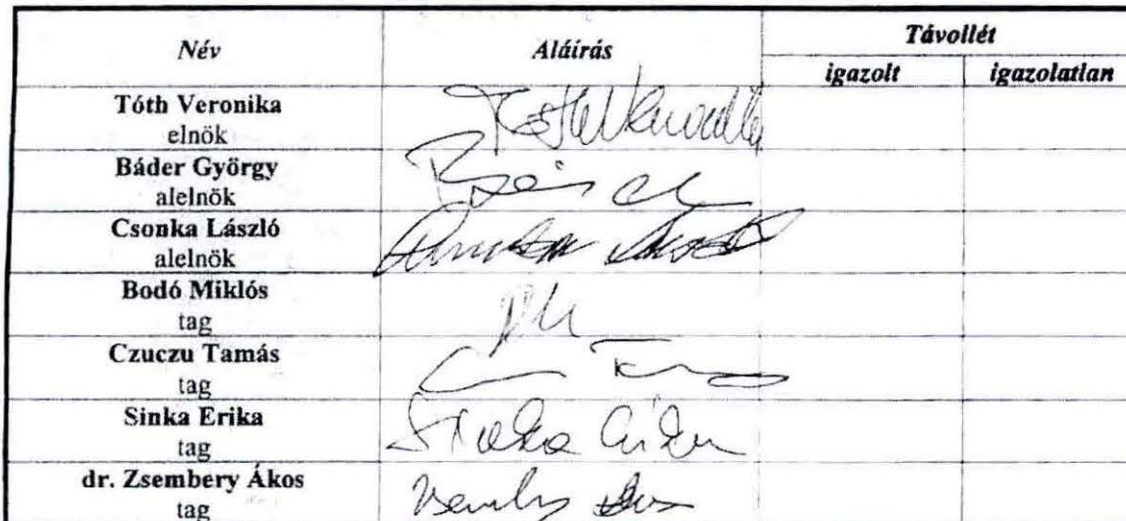 Név Aláírás Távollét
igazolt igazolatlan
Tóth Veronika
elnök
Báder György
alelnök
Csonka László
alelnök
Bodó Miklós
tag
Czuczu Tamás
tag
Sinka Erika
tag
Sinka Erika
dr. Zsembery Ákos
tag